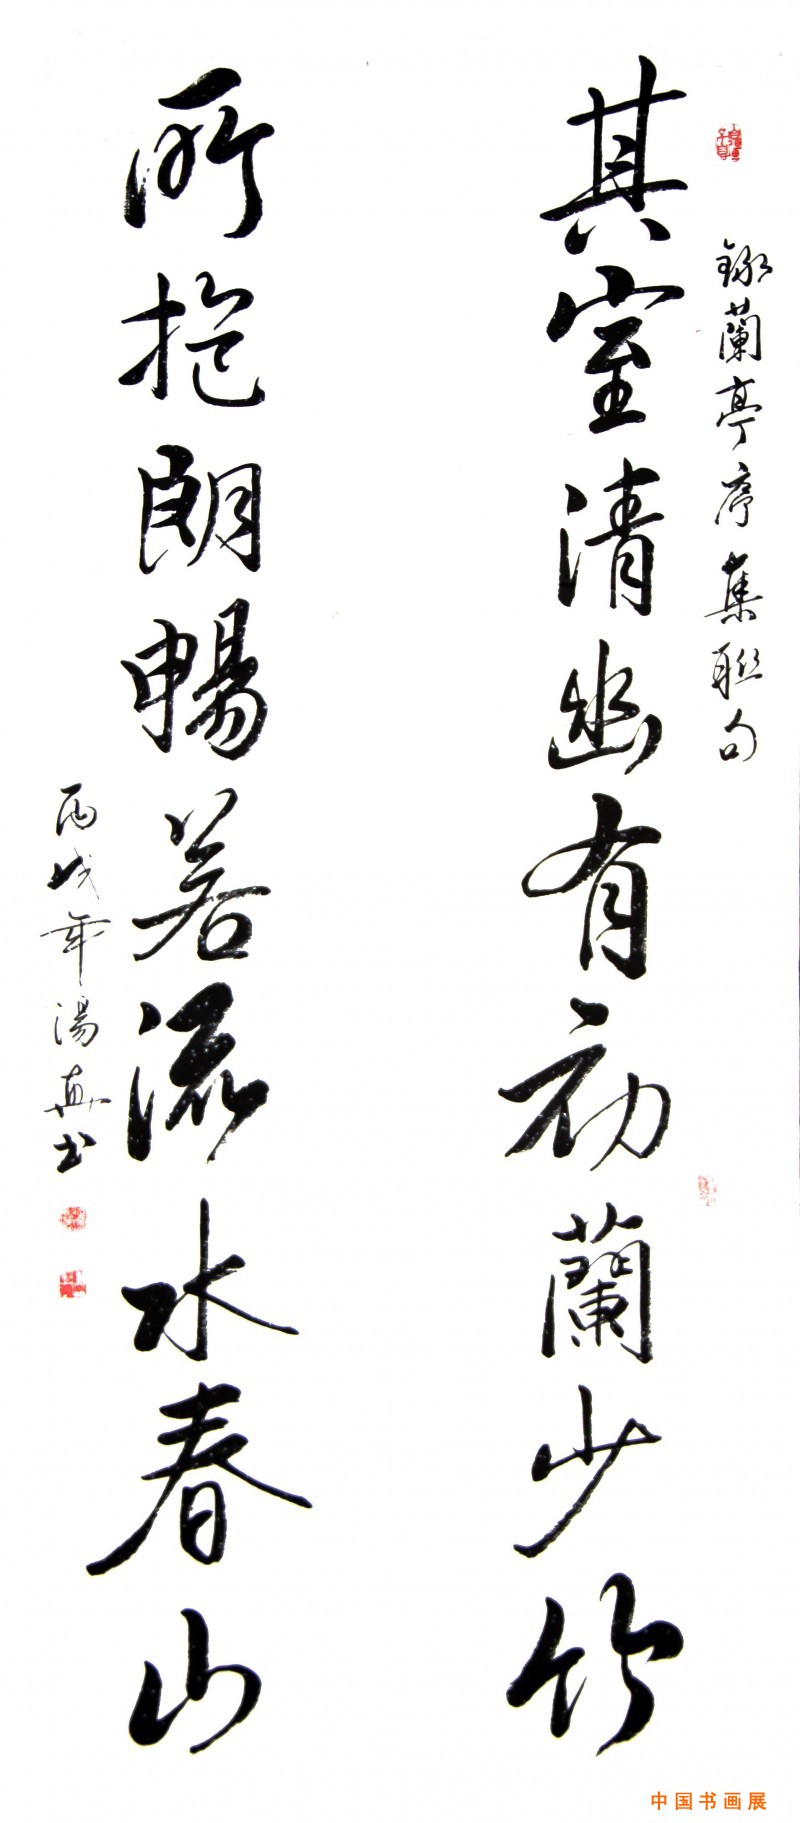 錄蘭亭序集聯句
其室清幽有初蘭少竹
所抱朗暢若流水春山
丙戌年湯真书
中国书画展